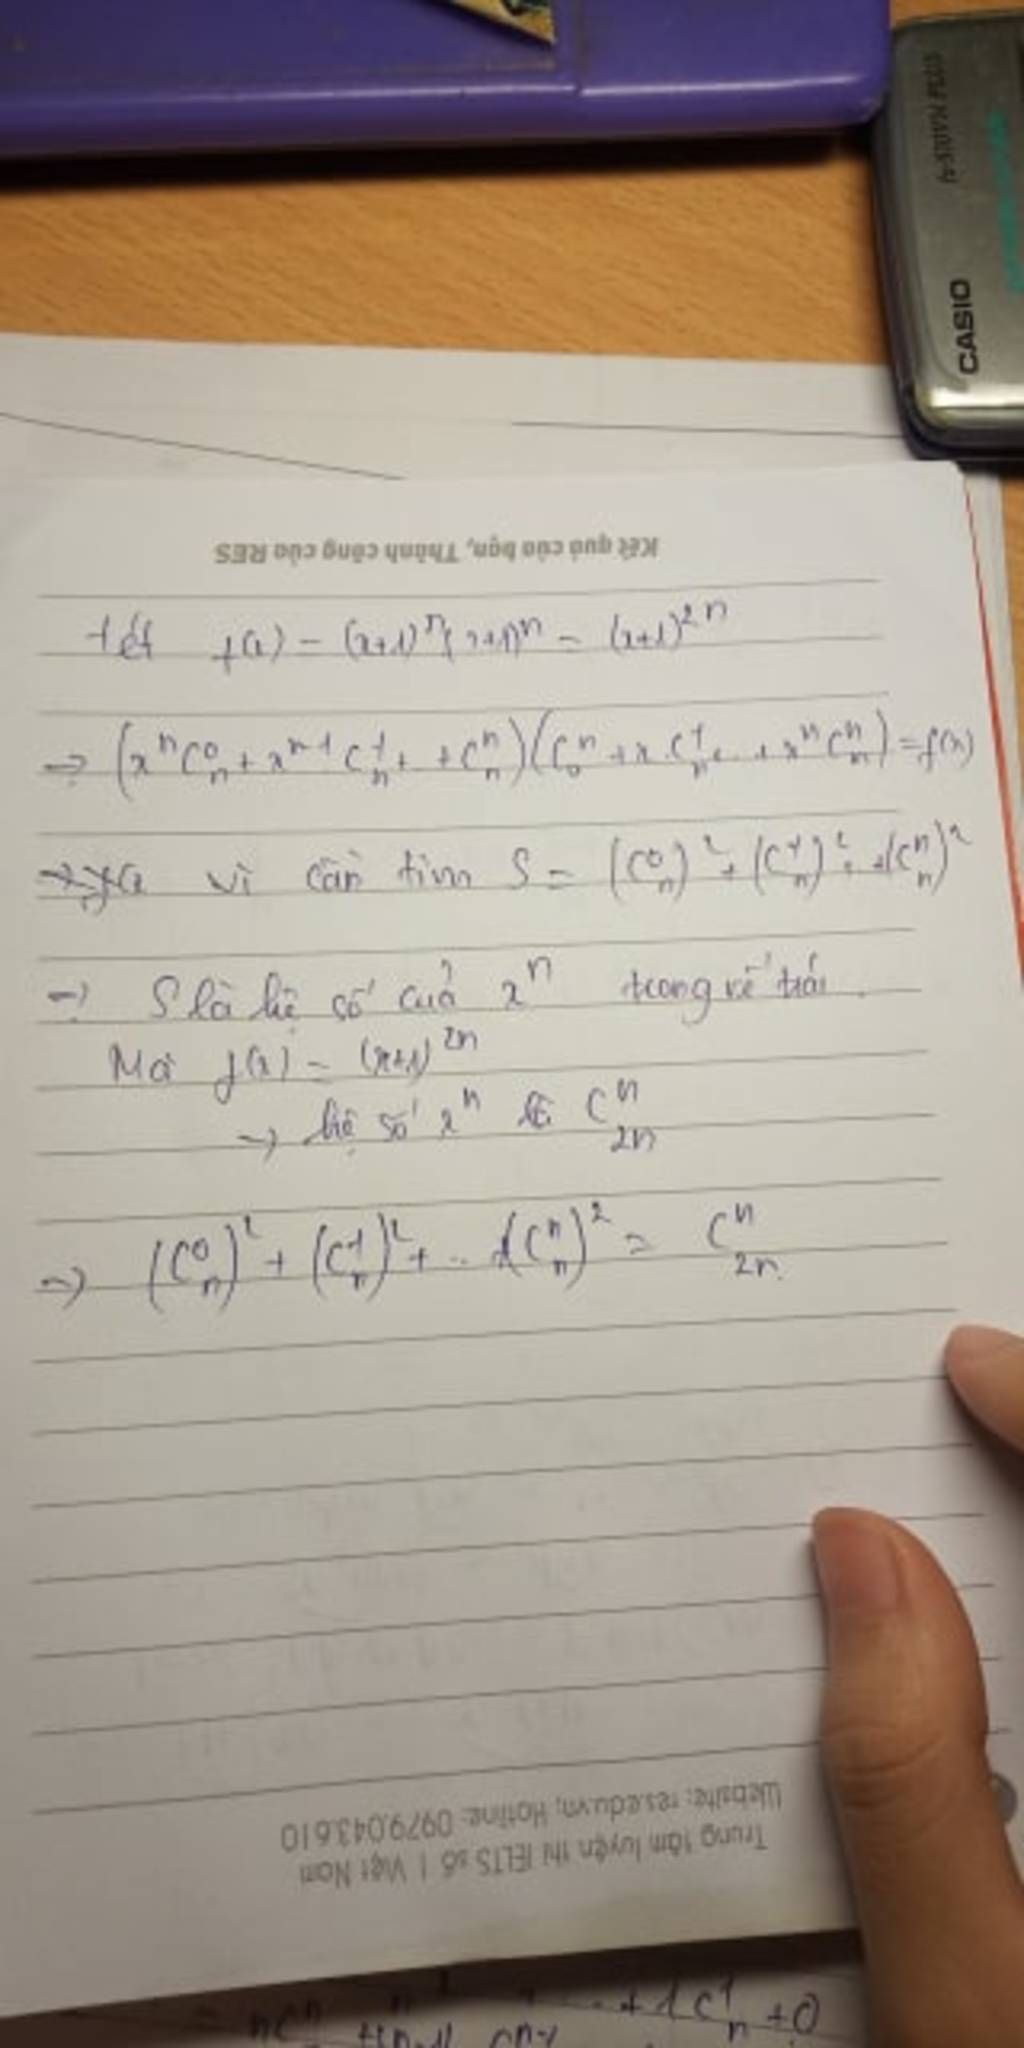 fx-570VN PLUS
CASIO
Kết quả của bạn, Thành công của RES
Xét f(x) = (x+1)^n (x+1)^n = (x+1)^2n
=> (x^n C_n^0 + x^n-1 C_n^1 + + C_n^n)(C_0^n + x C_n^1 + .. + x^n C_n^n) = f(x)
vì cần tìm S = (C_n^0)^2 + (C_n^1)^2 + +(C_n^n)^2
=> S là hệ số của x^n trong vế trái.
Mà f(x) = (x+1)^2n
-> hệ số x^n là C_2n^n
=> (C_n^0)^2 + (C_n^1)^2 + .. +(C_n^n)^2 = C_2n^n.
Trung tâm luyện thi IELTS số 1 Việt Nam
Website: res.edu.vn; Hotline: 0979.043.610
+ 1 C_n^1 + 0